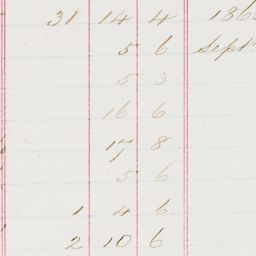 31 14 4 186
5 6 Sept
5 3
16 6
17 8
5 6
1 4 6
2 10 6